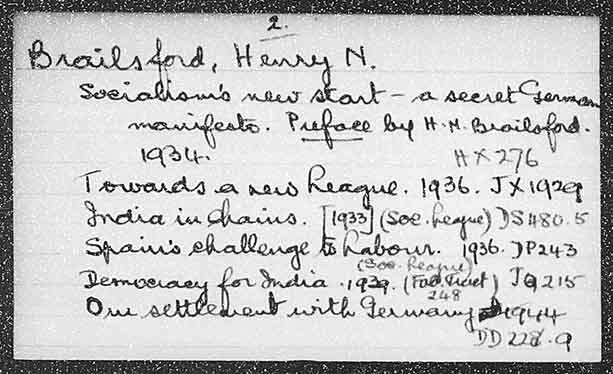 2.
Brailsford, Henry N.
Socialism's new start - a secret German
manifesto. Preface by H.N. Brailsford.
1934. HX276
Towards a new League. 1936. JX1929
India in chains. [1933] (Soc. League) DS480.5
Spain's challenge to Labour. 1936. DP243
(Soc. League)
Democracy for India. 1939. (Fab. Tract JQ215
248)
Our settlement with Germany 1944
DD221.9